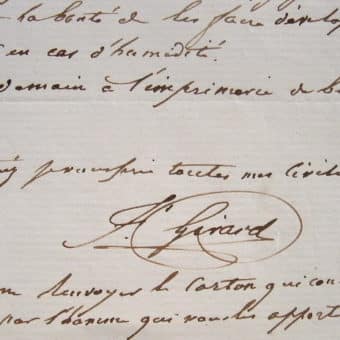 la bonté de les faire dévelop
en cas d'humidité.
demain à l'imprimerie de b
toutes mes civil
A. Girard
Renvoyer le carton qui con
par l'homme qui vous les apport